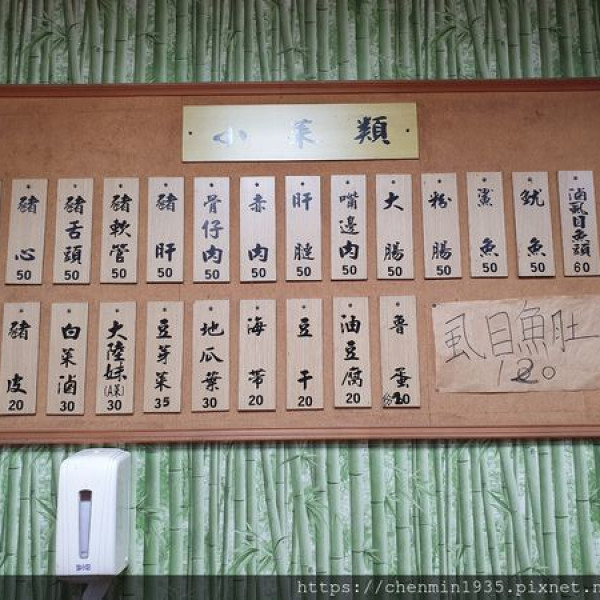 小菜類
豬心 50
豬舌頭 50
豬軟管 50
豬肝 50
骨仔肉 50
赤肉 50
肝腱 50
嘴邊肉 50
大腸 50
粉腸 50
鯊魚 50
魷魚 50
滷虱目魚頭 60
豬皮 20
白菜滷 30
大陸妹(A菜) 30
豆芽菜 35
地瓜葉 30
海帶 20
豆干 20
油豆腐 20
魯蛋
虱目魚肚
120
https://chenmin1935.pixnet.n